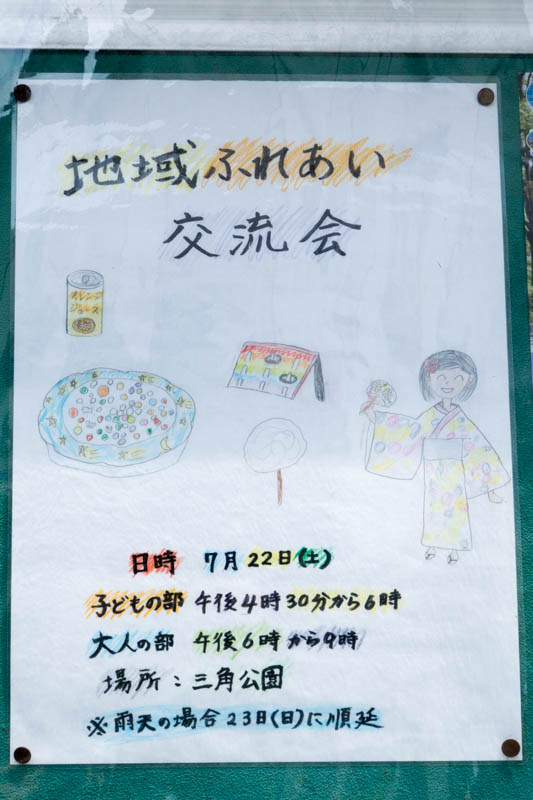 地域ふれあい
交流会
オレンジ
ジュース
日時 7月22日(土)
子どもの部 午後4時30分から6時
大人の部 午後6時から9時
場所：三角公園
※雨天の場合23日(日)に順延